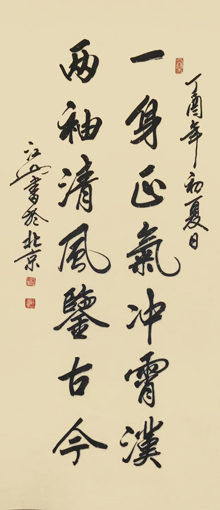 丁酉年初夏日
一身正氣冲霄漢
兩袖清風鑒古今
江山書於北京